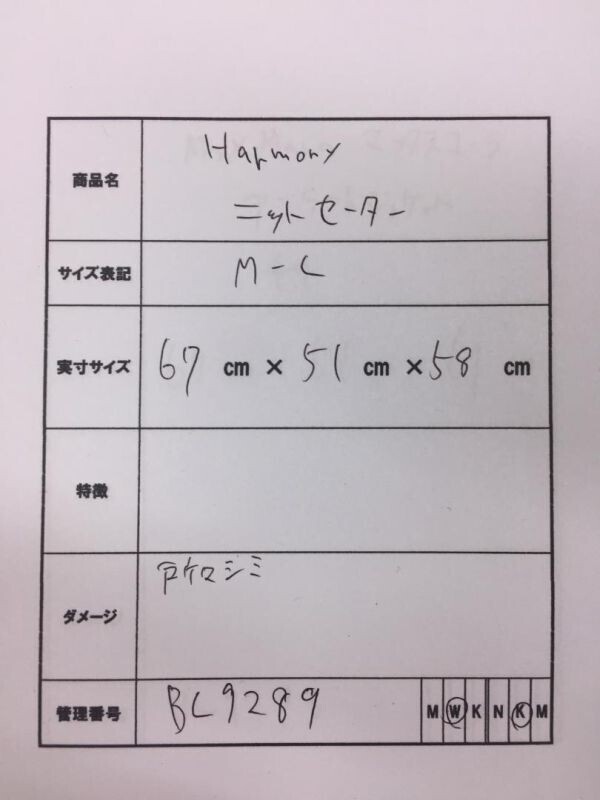 商品名 Harmony
ニットセーター
サイズ表記 M-L
実寸サイズ 67 cm × 51 cm × 58 cm
特徴
ダメージ シミ
管理番号 BL9289 M W K N K M